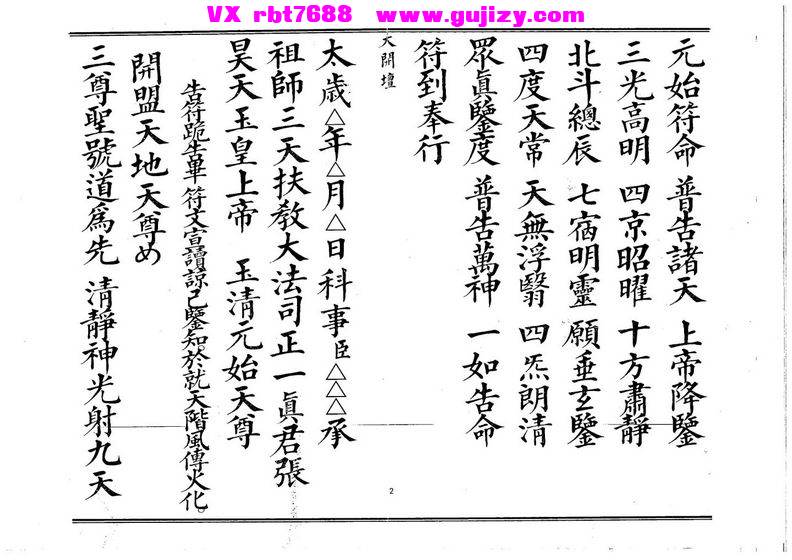 VX rbt7688 www.gujizy.com
元始符命 普告諸天 上帝降鑒
三光高明 四京昭曜 十方肅靜
北斗總辰 七宿明靈 願垂玄鑒
四度天常 天無浮翳 四炁朗清
眾眞鑒度 普告萬神 一如告命
符到奉行
大開壇
太歲△年△月△日科事臣△△△承
祖師三天扶教大法司正一眞君張
昊天玉皇上帝 玉清元始天尊
告符跪告畢 符文宣讀諒已鑒知於就天階風傳火化
開盟天地天尊め
三尊聖號道爲先 清靜神光射九天
2